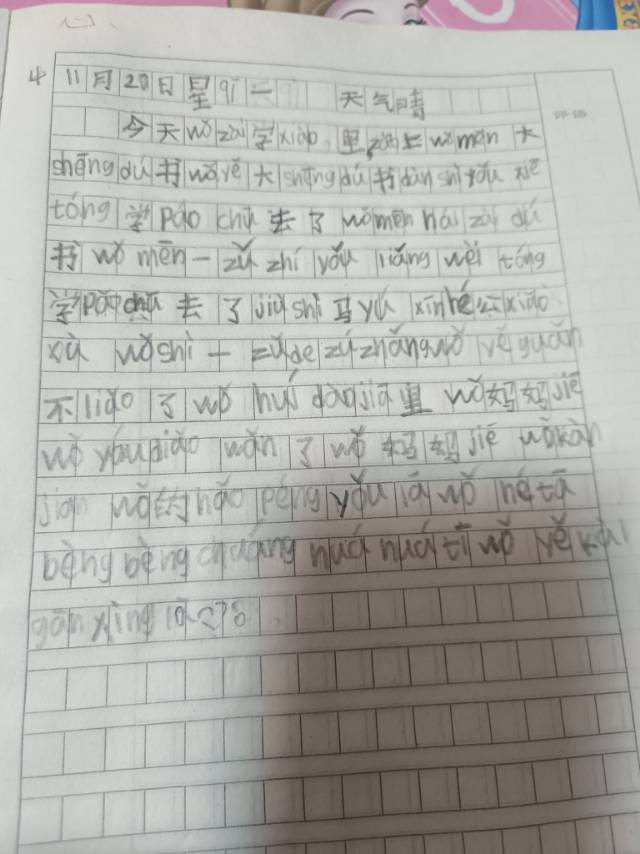 11月20日星qī一 天气晴
今天wǒzài学xiào里zǎo上wǒmen大
shēngdú书wǒyě大shēngdú书dàn shì yǒu xiē
tóng学pǎo chū去了wǒmēn hái zài dú
书wǒ mēn一zǔ zhí yǒu liǎng wèi tóng
学pǎo chū去了jiù shì马yú xīn hé
xù wǒshì一zǔde zǔzhǎng wǒ yě guǎn
不liǎo了wǒ huí dào jiā里wǒ妈妈jiē
wǒ yǒu diǎo wǎn了wǒ妈妈jiē wǒ kàn
jiàn wǒ的hǎo péng yǒu lā wǒ hé tā
bèng bèng chuáng huá huá tī wǒ yě kāi
gāo xìng lā